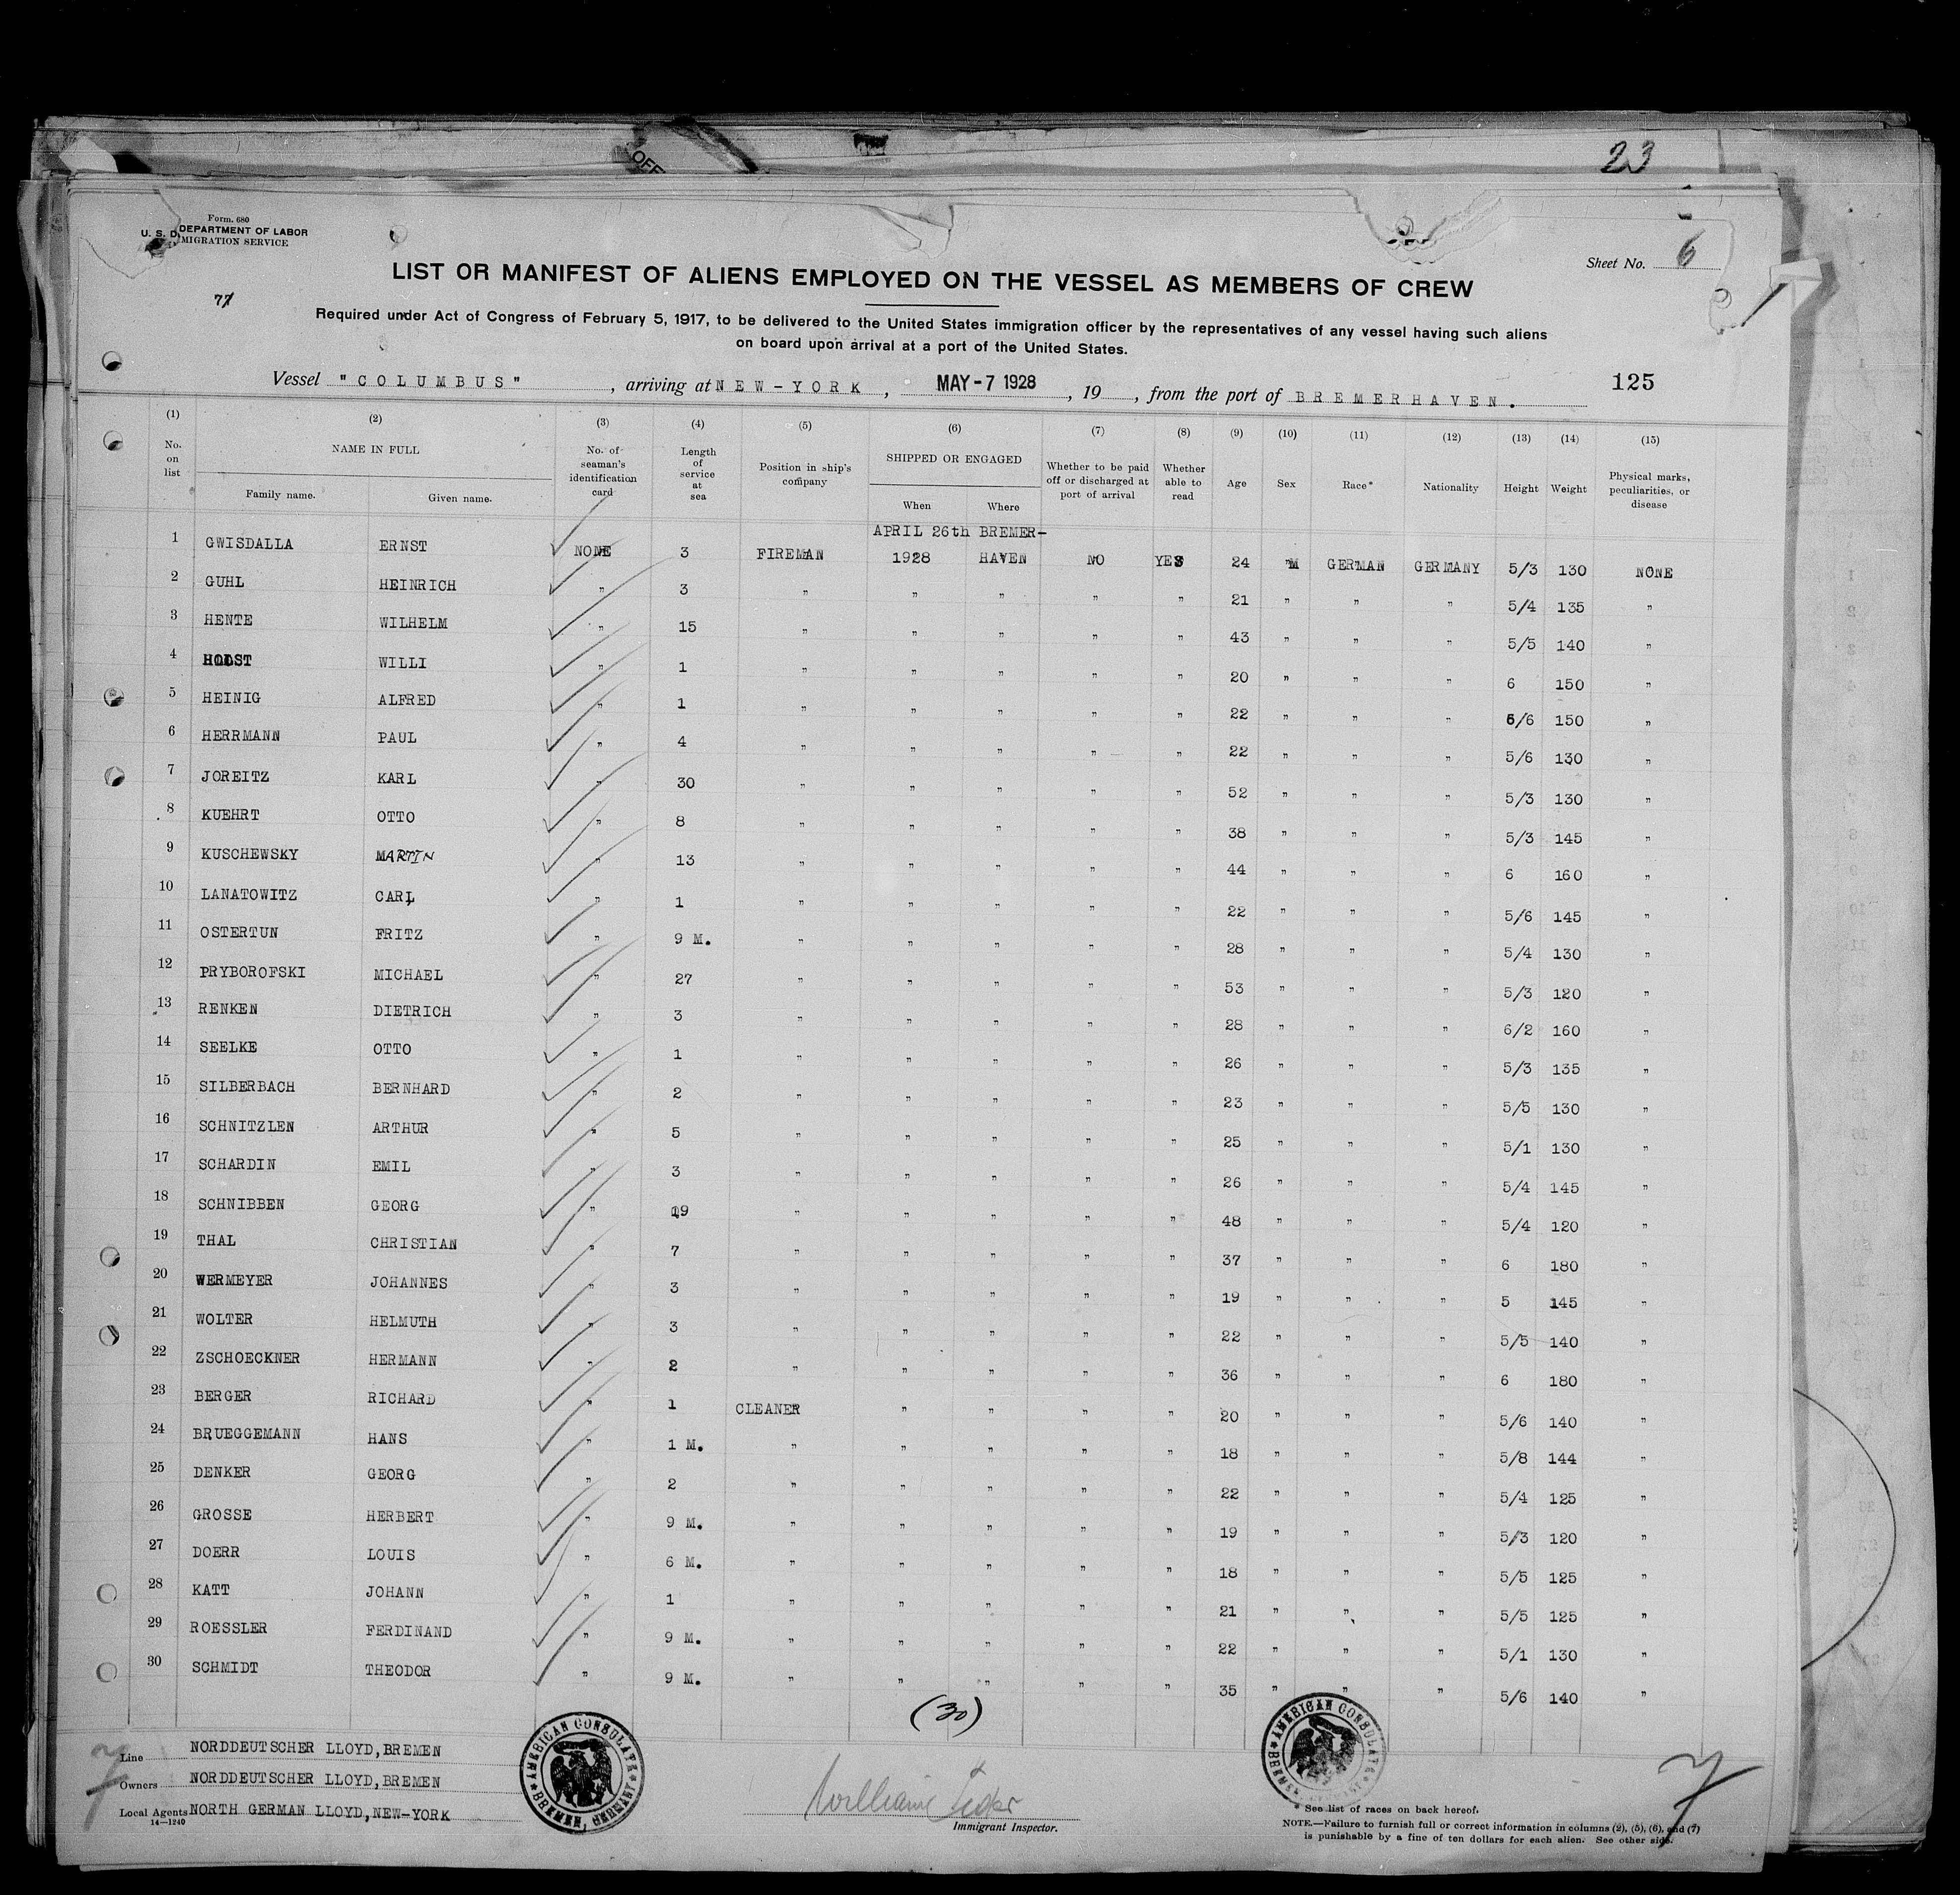 23
OFF
Form. 680
U. S. DEPARTMENT OF LABOR
MIGRATION SERVICE
Sheet No. 6
LIST OR MANIFEST OF ALIENS EMPLOYED ON THE VESSEL AS MEMBERS OF CREW
77
Required under Act of Congress of February 5, 1917, to be delivered to the United States immigration officer by the representatives of any vessel having such aliens
on board upon arrival at a port of the United States.
Vessel "COLUMBUS", arriving at NEW-YORK, MAY-7 1928, 19, from the port of BREMERHAVEN. 125
(1) (2) (3) (4) (5) (6) (7) (8) (9) (10) (11) (12) (13) (14) (15)
No. on list NAME IN FULL Family name. Given name. No. of seaman's identification card Length of service at sea Position in ship's company SHIPPED OR ENGAGED When Where Whether to be paid off or discharged at port of arrival Whether able to read Age Sex Race* Nationality Height Weight Physical marks, peculiarities, or disease
1 GWISDALLA ERNST NONE 3 FIREMAN APRIL 26th 1928 BREMER-HAVEN NO YES 24 M GERMAN GERMANY 5/3 130 NONE
2 GUHL HEINRICH " 3 " " " " " 21 " " " 5/4 135 "
3 HENTE WILHELM " 15 " " " " " 43 " " " 5/5 140 "
4 HOLST WILLI " 1 " " " " " 20 " " " 6 150 "
5 HEINIG ALFRED " 1 " " " " " 22 " " " 5/6 150 "
6 HERRMANN PAUL " 4 " " " " " 22 " " " 5/6 130 "
7 JOREITZ KARL " 30 " " " " " 52 " " " 5/3 130 "
8 KUEHRT OTTO " 8 " " " " " 38 " " " 5/3 145 "
9 KUSCHEWSKY MARTIN " 13 " " " " " 44 " " " 6 160 "
10 LANATOWITZ CARL " 1 " " " " " 22 " " " 5/6 145 "
11 OSTERTUN FRITZ " 9 M. " " " " " 28 " " " 5/4 130 "
12 PRYBOROFSKI MICHAEL " 27 " " " " " 53 " " " 5/3 120 "
13 RENKEN DIETRICH " 3 " " " " " 28 " " " 6/2 160 "
14 SEELKE OTTO " 1 " " " " " 26 " " " 5/3 135 "
15 SILBERBACH BERNHARD " 2 " " " " " 23 " " " 5/5 130 "
16 SCHNITZLEN ARTHUR " 5 " " " " " 25 " " " 5/1 130 "
17 SCHARDIN EMIL " 3 " " " " " 26 " " " 5/4 145 "
18 SCHNIBBEN GEORG " 19 " " " " " 48 " " " 5/4 120 "
19 THAL CHRISTIAN " 7 " " " " " 37 " " " 6 180 "
20 WERMEYER JOHANNES " 3 " " " " " 19 " " " 5 145 "
21 WOLTER HELMUTH " 3 " " " " " 22 " " " 5/5 140 "
22 ZSCHOECKNER HERMANN " 2 " " " " " 36 " " " 6 180 "
23 BERGER RICHARD " 1 CLEANER " " " " 20 " " " 5/6 140 "
24 BRUEGGEMANN HANS " 1 M. " " " " " 18 " " " 5/8 144 "
25 DENKER GEORG " 2 " " " " " 22 " " " 5/4 125 "
26 GROSSE HERBERT " 9 M. " " " " " 19 " " " 5/3 120 "
27 DOERR LOUIS " 6 M. " " " " " 18 " " " 5/5 125 "
28 KATT JOHANN " 1 " " " " " 21 " " " 5/5 125 "
29 ROESSLER FERDINAND " 9 M. " " " " " 22 " " " 5/1 130 "
30 SCHMIDT THEODOR " 9 M. " " " " " 35 " " " 5/6 140 "
(30)
Line NORDDEUTSCHER LLOYD, BREMEN
Owners NORDDEUTSCHER LLOYD, BREMEN
Local Agents NORTH GERMAN LLOYD, NEW-YORK
14—1240
AMERICAN CONSULATE BREMEN, GERMANY
William
Immigrant Inspector.
AMERICAN CONSULATE BREMEN
* See list of races on back hereof.
NOTE.—Failure to furnish full or correct information in columns (2), (5), (6), and (7)
is punishable by a fine of ten dollars for each alien. See other side.